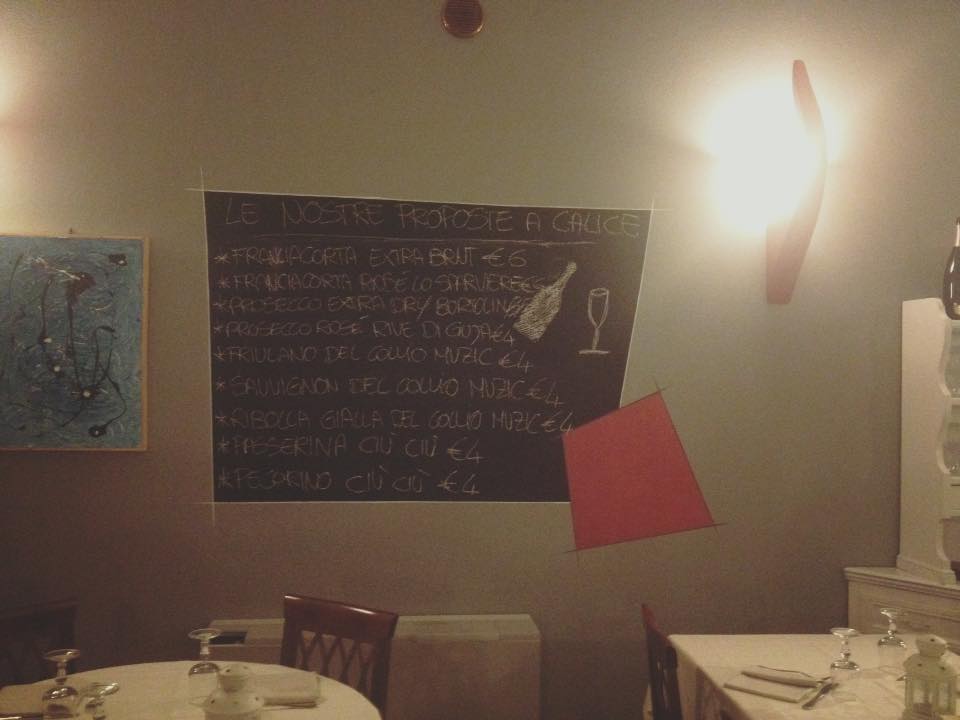 LE NOSTRE PROPOSTE A CALICE
*FRANCIACORTA EXTRA BRUT €6
*FRANCIACORTA ROSÉ LO SPARVIERE
*PROSECCO EXTRA DRY BORTOLIN
*PROSECCO ROSÉ RIVE DI GUJA €4
*FRIULANO DEL COLLIO MUZIC €4
*SAUVIGNON DEL COLLIO MUZIC €4
*RIBOLLA GIALLA DEL COLLIO MUZIC €4
*PASSERINA CIÙ CIÙ €4
*PECORINO CIÙ CIÙ €4